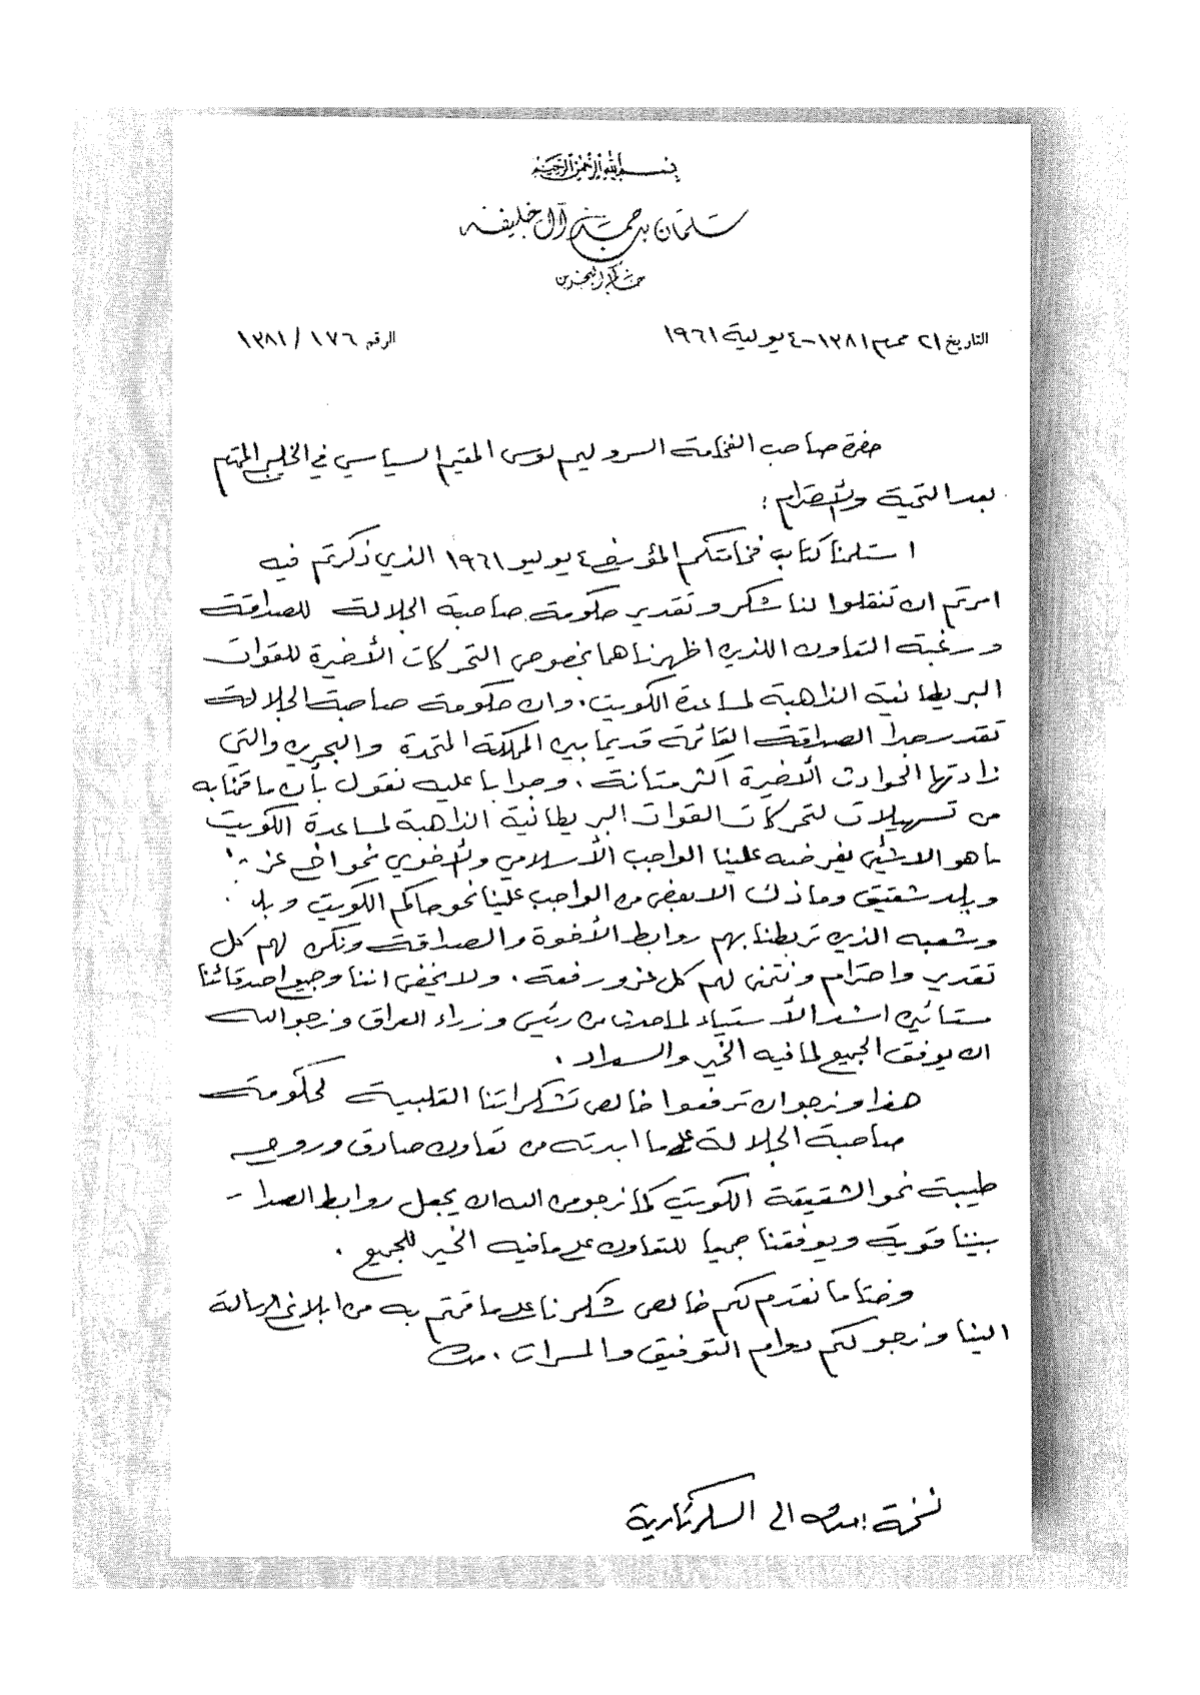 بسم الله الرحمن الرحيم
سلمان بن حمد آل خليفه
حاكم البحرين
التاريخ ٢١ محرم ١٣٨١ - ٤ يولية ١٩٦١
الرقم ١٧٦ / ١٣٨١
حضرة صاحب الفخامة السر وليم لوس المقيم السياسي في الخليج المحترم
بعد التحية والاحترام :
استلمنا كتاب فخامتكم المؤرخ ٤ يوليو ١٩٦١ الذي ذكرتم فيه
امرتم ان تنقلوا لنا شكر وتقدير حكومة صاحبة الجلالة للصداقة
ورغبة التعاون اللذين اظهرناهما بخصوص التحركات الأخيرة للقوات
البريطانية الذاهبة لمساعدة الكويت . وان حكومة صاحبة الجلالة
تقدر جدا الصداقة القائمة قديما بين المملكة المتحدة والبحرين والتي
زادتها الحوادث الأخيرة اكثر متانة . وجوابا عليه نقول بأن ما قمنا به
من تسهيلات لتحركات القوات البريطانية الذاهبة لمساعدة الكويت
ما هو الا شئ يفرضه علينا الواجب الأسلامي والأخوي نحو اخ عزيز
وبلد شقيق وما ذلك الا بعض من الواجب علينا نحو حاكم الكويت
وشعبه الذين تربطنا بهم روابط الأخوة والصداقة ونكن لهم كل
تقدير واحترام ونتمنى لهم كل عز ورفعة . ولا يخفى اننا وجميع اصدقائنا
مستائين اشد الأستياء لما حدث من رئيس وزراء العراق ونرجو الله
ان يوفق الجميع لما فيه الخير والسداد .
هذا ونرجو ان ترفعوا خالص تشكراتنا القلبية لحكومة
صاحبة الجلالة على ما ابدته من تعاون صادق وروح
طيبة نحو الشقيقة الكويت كما نرجو من الله ان يجعل روابط
بيننا قوية ويوفقنا جميعا للتعاون على ما فيه الخير للجميع .
وختاما نقدم لكم خالص شكرنا على ما قمتم به من ابلاغ الرسالة
الينا ونرجو لكم دوام التوفيق والمسرات .
نسخة منه الى السكرتارية